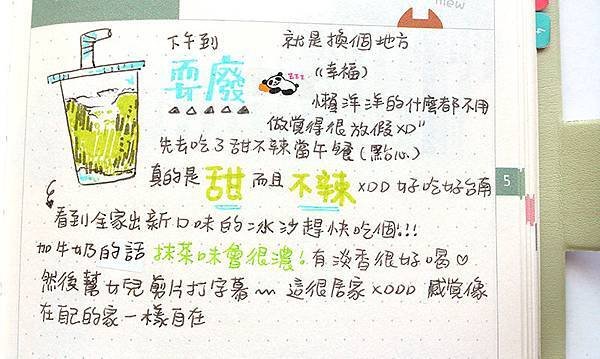 mew
下午到
耍廢
就是換個地方
(幸福)
zzz
懶洋洋的什麼都不用
做覺得很放假XD"
先去吃了甜不辣當午餐(點心)
真的是 甜 而且 不辣 XDD 好吃好台南
5
看到全家出新口味的冰沙趕快吃個!!!
加牛奶的話 抹茶味會很濃! 有淡香很好喝♡
然後幫女兒剪片打字幕~~ 這很居家XDDD 感覺像
在自己的家一樣自在